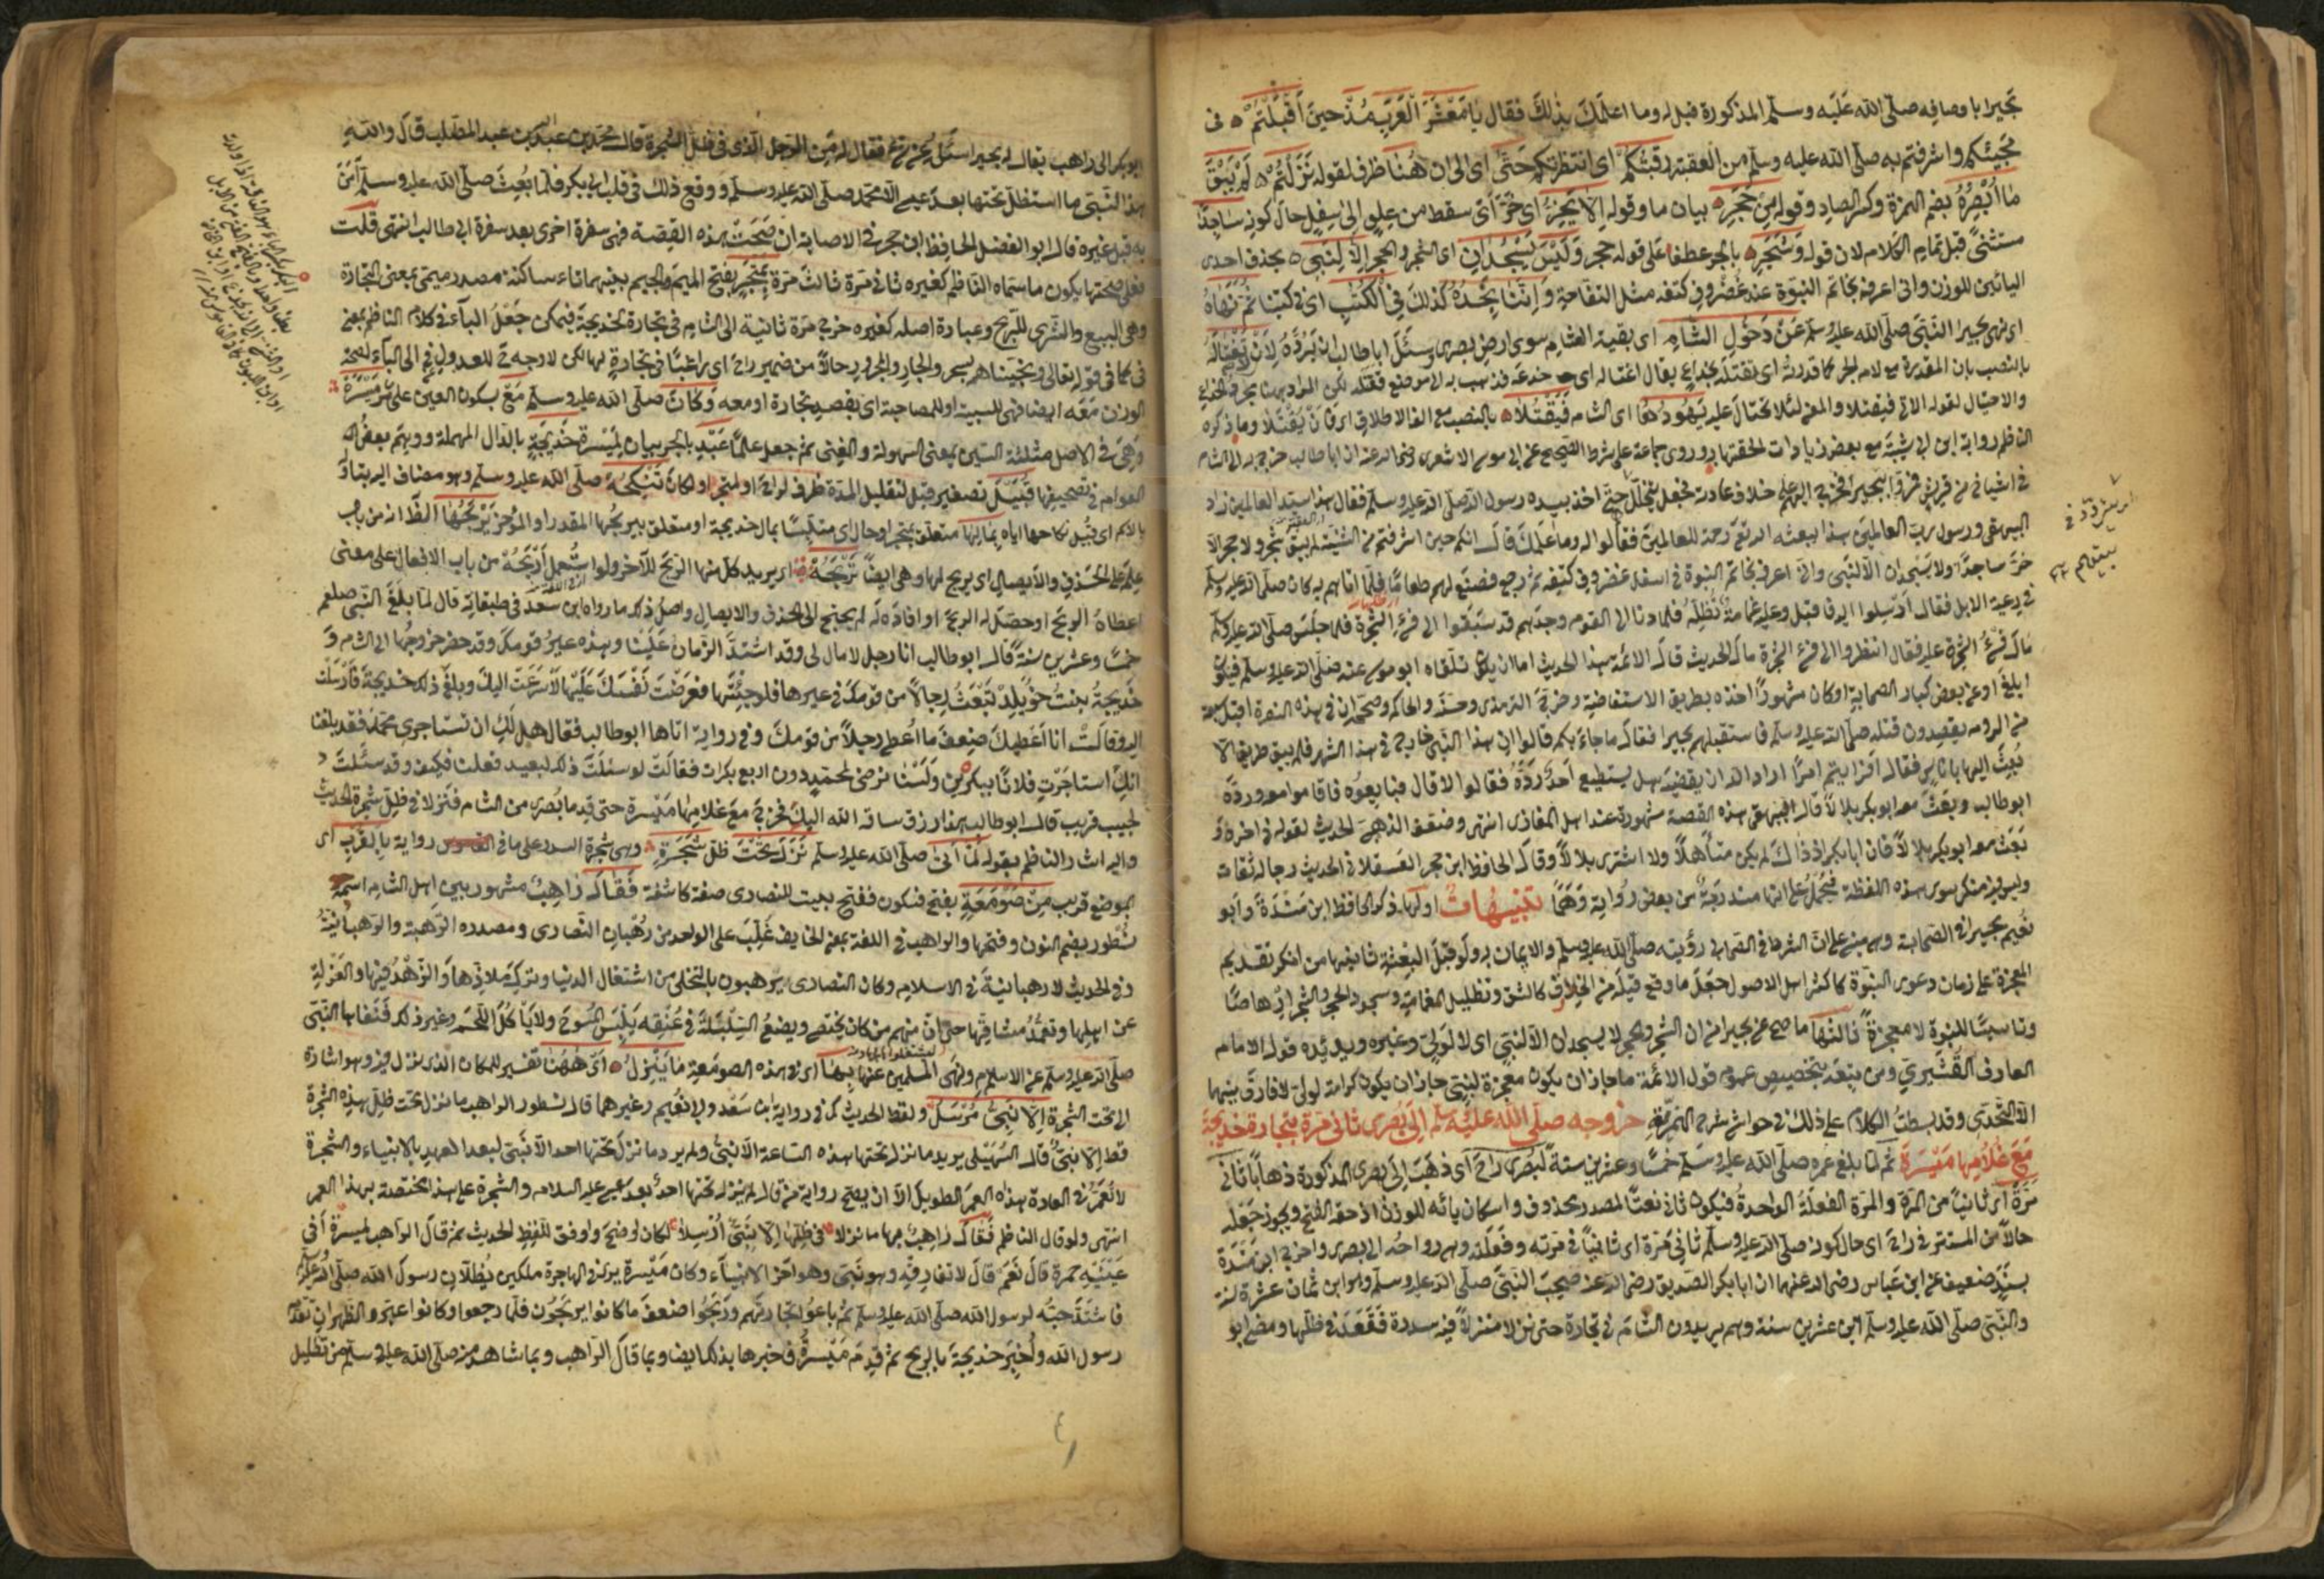 بحيرا باوصافه صلى الله عليه وسلم المذكورة قبل له وما اعلمك بذلك فقال يا معشر العرب مذ حين اقبلتم في
مجيئكم واشرفتم به صلى الله عليه وسلم من العقبة رقبتكم اي انتظرتكم حتى اي الى ان هنا ظرف لقوله نزلتم لم يبق
ما ابصره بضم الهمزة وكسر الصاد وقوله من حجر بيان ما وقوله الا يخر اي خر اي سقط من علو الى سفل حال كونه ساجدا
مستثنى قبل تمام الكلام لان قوله وشجر بالجر عطفا على قوله حجر وليس يسجدان اي الشجر والحجر الا لنبي بحذف احدى
اليائين للوزن واني اعرفه بخاتم النبوة عند غضروف كتفه مثل التفاحة واننا نجده كذلك في الكتب اي في كتبنا ثم نهاه
اي نهى بحيرا النبي صلى الله عليه وسلم عن دخول الشام اي بقية الشام سوى ارض بصرى وسئل ابا طالب ان يرده لان تغتاله
بالنصب بان المقدرة مع لام الجر كما قدرته اي تقتله بخداع يقال اغتاله اي خدعه فذهب به الى موضع فقتله لكن المراد به هنا مجرد الخداع
والاحتيال لقوله الاتي فيقتلا والمعنى لئلا تحتال عليه يهودها اي الشام فيقتلا بالنصب مع الف الاطلاق اي فان يقتلا وما ذكره
الناظم رواية ابن ابي شيبة مع بعض زيادات لحقتها به وروى جماعة على شرط الصحيح عن ابي موسى الاشعري رضي الله عنه ان ابا طالب خرج به الى الشام
في اشياخ من قريش فمروا ببحيرا فخرج اليهم على خلاف عادته فجعل يتخللهم حتى اخذ بيده رسول الله صلى الله عليه وسلم فقال هذا سيد العالمين زاد
البيهقي ورسول رب العالمين هذا يبعثه الله تعالى رحمة للعالمين فقالوا له وما علمك قال انكم حين اشرفتم من الثنية لم يبق شجر ولا حجر الا
خر ساجدا ولا يسجدان الا لنبي واني اعرفه بخاتم النبوة في اسفل غضروف كتفه ثم رجع فصنع لهم طعاما فلما اتاهم به كان صلى الله عليه وسلم
في رعية الابل فقال ارسلوا اليه فاقبل وعليه غمامة تظله فلما دنا الى القوم وجدهم قد سبقوا الى فيء الشجرة فلما جلس صلى الله عليه وسلم
مال فيء الشجرة عليه فقال انظروا الى فيء الشجرة مال الحديث قال الائمة هذا الحديث اما ان يكون تلقاه ابو موسى عنه صلى الله عليه وسلم فيكون
ابلغ او عن بعض كبار الصحابة او كان مشهورا اخذه بطريق الاستفاضة وخرجه الترمذي وحسنه والحاكم وصححه ان في هذه السفرة اقبل سبعة
من الروم يقصدون قتله صلى الله عليه وسلم فاستقبلهم بحيرا فقال ما جاء بكم قالوا ان هذا النبي خارج في هذا الشهر فلم يبق طريق الا
بعث اليها باناس فقال افرايتم امرا اراد الله ان يقضيه هل يستطيع احد رده فقالوا لا قال فبايعوه فاقاموا معه ورده
ابو طالب وبعث معه ابو بكر بلالا قال البيهقي هذه القصة مشهورة عند اهل المغازي انتهى وضعف الذهبي الحديث لقوله في اخره و
بعث معه ابو بكر بلالا فان ابا بكر اذ ذاك لم يكن متأهلا ولا اشترى بلالا وقال الحافظ ابن حجر العسقلاني الحديث رجاله ثقات
وليس فيه منكر سوى هذه اللفظة فتحمل على انها مندرجة من بعض رواية وهما تنبيهات اولها ذكر الحافظ ابن مندة وابو
نعيم بحيرا في الصحابة وهو مبني على ان الشرط في الصحابي رؤيته صلى الله عليه وسلم والايمان به ولو قبل البعثة ثانيها من انكر تقديم
المعجزة على زمان دعوى النبوة كاكثر اهل الاصول جعل ما وقع قبله من الخوارق كالشق وتظليل الغمامة وسجود الحجر والشجر ارهاصا
وتاسيسا للنبوة لا معجزة ثالثها ما صح عن بحيرا من ان الشجر والحجر لا يسجدان الا لنبي اي لا لولي وغيره ويؤيده قول الامام
العارف القشيري ومن تبعه بتخصيص عموم قول الائمة ما جاز ان يكون معجزة لنبي جاز ان يكون كرامة لولي لا فارق بينهما
الا التحدي وقد بسطت الكلام على ذلك في حواشي شرح الهمزية خروجه صلى الله عليه وسلم الى بصرى ثاني مرة بتجارة خديجة
مع غلامها ميسرة ثم لما بلغ عمره صلى الله عليه وسلم خمسا وعشرين سنة لبصرى راح اي ذهب الى بصرى المذكورة ذهابا ثاني
مرة اي ثانيا من المرة والمرة الفعلة الواحدة فيكون ثاني نعتا لمصدر محذوف واسكان يائه للوزن اذ حقه الفتح ويجوز جعله
حالا من المستتر في راح اي حال كونه صلى الله عليه وسلم ثاني مرة اي ثانيا في مرته وفعلته وهو رواحه الى بصرى واخرج ابن مندة
بسند ضعيف عن ابن عباس رضي الله عنهما ان ابا بكر الصديق رضي الله عنه صحب النبي صلى الله عليه وسلم وهو ابن ثمان عشرة سنة
والنبي صلى الله عليه وسلم ابن عشرين سنة وهم يريدون الشام في تجارة حتى نزلا منزلا فيه سدرة فقعد في ظلها ومضى ابو
ابو بكر الى راهب يقال له بحيرا سئل عن شيء فقال له من الرجل الذي في ظل الشجرة قال محمد بن عبد الله بن عبد المطلب قال والله
هذا النبي ما استظل تحتها بعد عيسى الا محمد صلى الله عليه وسلم ووقع ذلك في قلب ابي بكر فلما بعث صلى الله عليه وسلم آمن
به قبل غيره قال ابو الفضل الحافظ ابن حجر في الاصابة ان صحت هذه القصة فهي سفرة اخرى بعد سفرة ابي طالب انتهى قلت
فعلى صحتها يكون ما سماه الناظم كغيره ثاني مرة ثالث مرة بمتجر بفتح الميم والجيم بينهما تاء ساكنة مصدر ميمي بمعنى التجارة
وهي البيع والشرى للربح وعبارة اصله كغيره خرج مرة ثانية الى الشام في تجارة لخديجة فيمكن جعل الباء في كلام الناظم بمعنى
في كما في قوله تعالى ونجيناهم بسحر والجار والمجرور حالا من ضمير راح اي راغبا في تجارة لها لكن لا وجه للعدول في الى الباء لصحة
الوزن معه ايضا فهي للسببية او للمصاحبة اي بقصد تجارة او معه وكان صلى الله عليه وسلم مع بسكون العين على ميسرة
وهي في الاصل مثلثة السين بمعنى السهولة والغنى ثم جعل علما عبد بالجر بيان لميسرة خديجة بالدال المهملة ووهم بعض
العوام في تصحيفها قبيل تصغير قبل لتقليل المدة ظرف لراح او لمتجر او لكان تنكحه صلى الله عليه وسلم وهو مضاف اليه بتاو
بالاسم اي قبل نكاحها اياه بمالها متعلق بمتجر او حال اي متلبسا بمال خديجة او متعلق بيربحها المقدر او المؤخر يربحها الظاهر انه من باب
علم على الحذف والايصال اي يربح لها وهي ايضا تربحه اي يريد كل منها الربح للآخر ولو استعمل اربحه من باب الافعال على معنى
اعطاه الربح او حصل له الربح او افاده له لم يحتج الى الحذف والايصال واصل ذلك ما رواه ابن سعد في طبقاته قال لما بلغ النبي صلعم
خمسا وعشرين سنة قال ابو طالب انا رجل لا مال لي وقد اشتد الزمان علينا وهذه عير قومك وقد حضر خروجها الى الشام و
خديجة بنت خويلد تبعث رجالا من قومك في عيرها فلو جئتها فعرضت نفسك عليها لاسرعت اليك وبلغ ذلك خديجة فارسلت
اليه وقالت انا اعطيك ضعف ما اعطي رجلا من قومك وفي رواية اتاها ابو طالب فقال هل لك ان تستاجري محمدا فقد بلغنا
انك استاجرت فلانا ببكرين ولسنا نرضى لمحمد دون اربع بكرات فقالت لو سئلت ذلك لبعيد فعلنا فكيف وقد سئلت
لحبيب قريب قال ابو طالب هذا رزق ساقه الله اليك فخرج مع غلامها ميسرة حتى قدما بصرى من الشام فنزلا في ظل شجرة الحديث
واليه اشار الناظم بقوله لما اتى صلى الله عليه وسلم نزل تحت ظل شجرة وهي شجرة السدر على ما في رواية بالقرب اي
بموضع قريب من صومعة بفتح فسكون ففتح بيت للنصارى صفة كاشفة فقال راهب مشهور بين اهل الشام اسمه
نسطور بضم النون وفتحها والراهب في اللغة بمعنى الخايف غلب على الواحد من رهبان النصارى ومصدره الرهبة والرهبانية
وفي الحديث لا رهبانية في الاسلام وكان النصارى يترهبون بالتخلي من اشتغال الدنيا وترك ملاذها والزهد فيها والعزلة
عن اهلها وتعمد مشاقها حتى ان منهم من كان يختصي ويضع السلسلة في عنقه يلبس المسوح ولا يأكل اللحم وغير ذلك فنفاها النبي
صلى الله عليه وسلم عن الاسلام ونهى المسلمين عنها بها اي في هذه الصومعة ما ينزل اي ههنا تفسير للمكان الذي نزل فيه وهو اشارة
الى تحت الشجرة الا نبي مرسل ولفظ الحديث كما في رواية ابن سعد ولابي نعيم وغيرهما قال نسطور الراهب ما نزل تحت ظل هذه الشجرة
قط الا نبي قال السهيلي يريد ما نزل تحتها هذه الساعة الا نبي ولم يرد ما نزل تحتها احد الا نبي لبعد العهد بالانبياء والشجرة
لا تعمر في العادة هذا العمر الطويل الا ان يصح رواية من قال لم ينزل تحتها احد بعد عيسى عليه السلام والشجرة على هذا مختصة بهذا العمر
انتهى ولو قال الناظم فقال راهب بها ما نزلا في ظلها الا نبي ارسلا لكان اوضح واوفق للفظ الحديث ثم قال الراهب لميسرة أفي
عينيه حمرة قال نعم قال لا تفارقه وهو نبي وهو اخر الانبياء وكان ميسرة يرى في الهاجرة ملكين يظلان رسول الله صلى الله عليه وسلم
فاشتد حبه لرسول الله صلى الله عليه وسلم ثم باعوا تجارتهم وربحوا ضعف ما كانوا يربحون فلما رجعوا وكانوا عبرو الظهران تقدم
رسول الله واخبر خديجة بالربح ثم قدم ميسرة فاخبرها بذلك ايضا وبما قال الراهب وبما شاهد من صلى الله عليه وسلم من تظليل